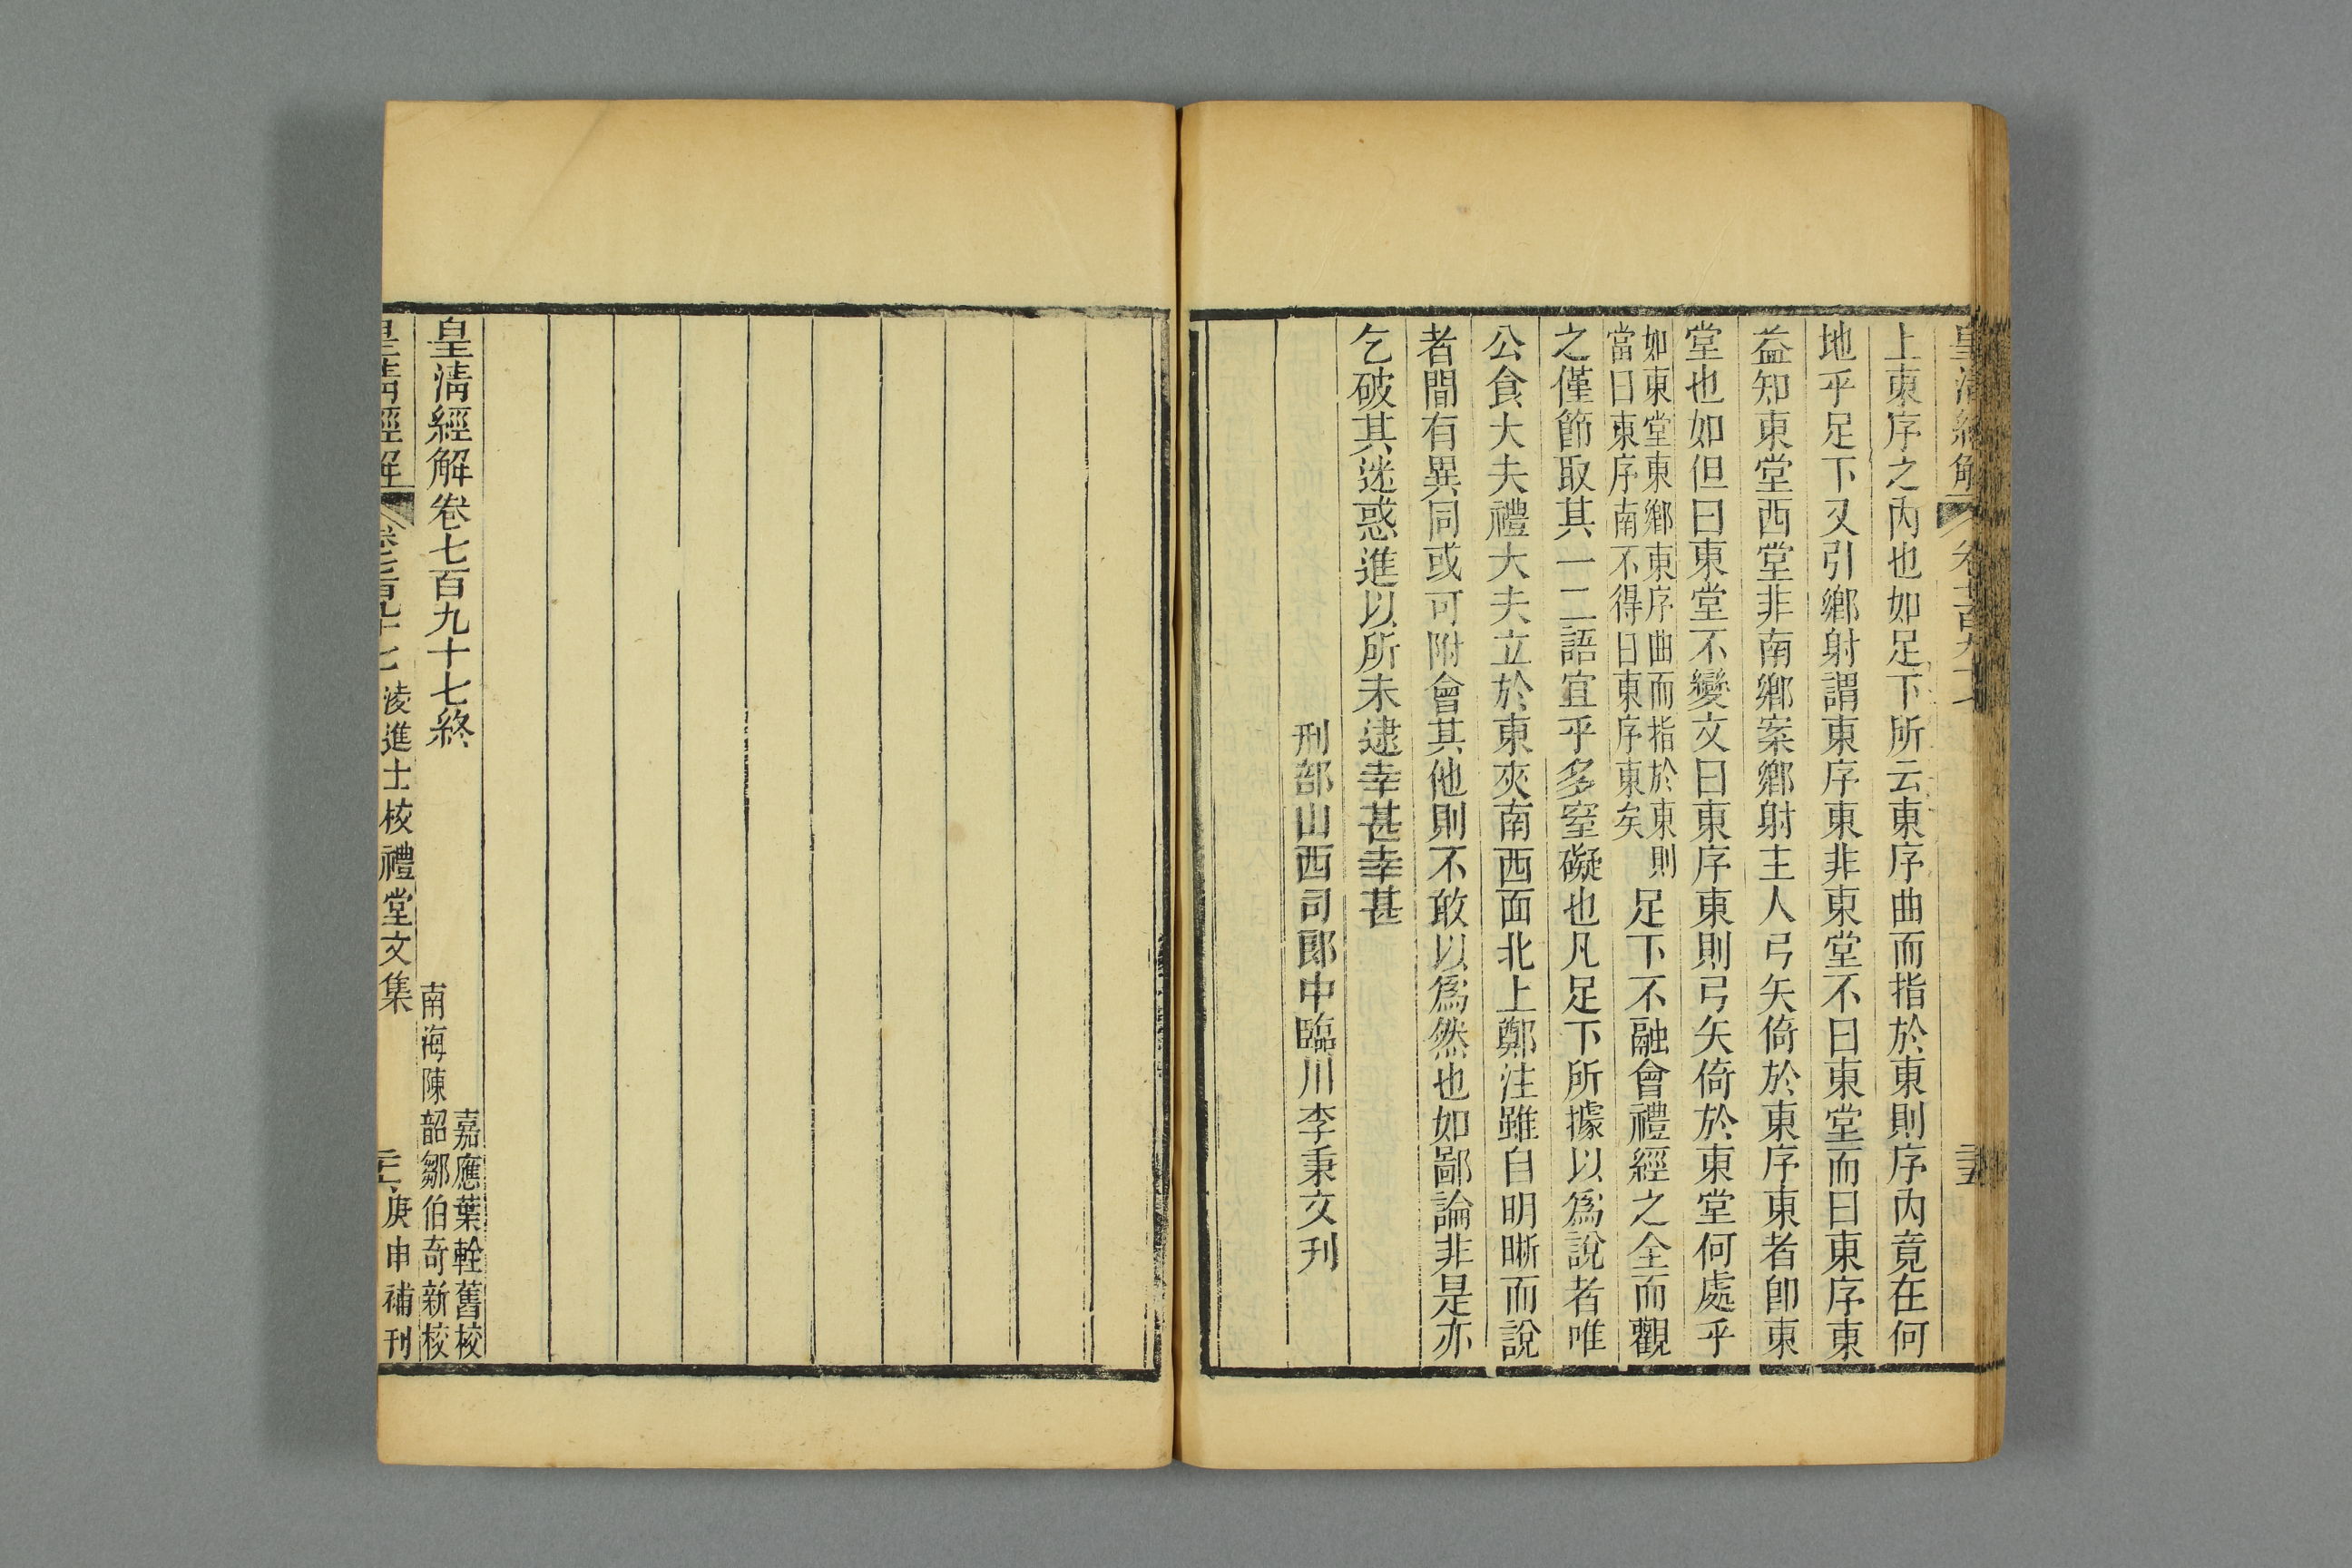 皇清經解 卷七百九十七 三五
上東序之內也如足下所云東序曲而指於東則序內竟在何
地乎足下又引鄉射謂東序東非東堂不曰東堂而曰東序東
益知東堂西堂非南鄉案鄉射主人弓矢倚於東序東者卽東
堂也如但曰東堂不變文曰東序東則弓矢倚於東堂何處乎
如東堂東鄉東序曲而指於東則
當曰東序南不得曰東序東矣
足下不融會禮經之全而觀
之僅節取其一二語宜乎多窒礙也凡足下所據以爲說者唯
公食大夫禮大夫立於東夾南西面北上鄭注雖自明晰而說
者間有異同或可附會其他則不敢以爲然也如鄙論非是亦
乞破其迷惑進以所未逮幸甚幸甚
刑部山西司郎中臨川李秉文刊
皇清經解卷七百九十七終
嘉應葉輇舊校
南海陳韶鄒伯奇新校
皇清經解 卷七百九十七 淩進士校禮堂文集 庚申補刊